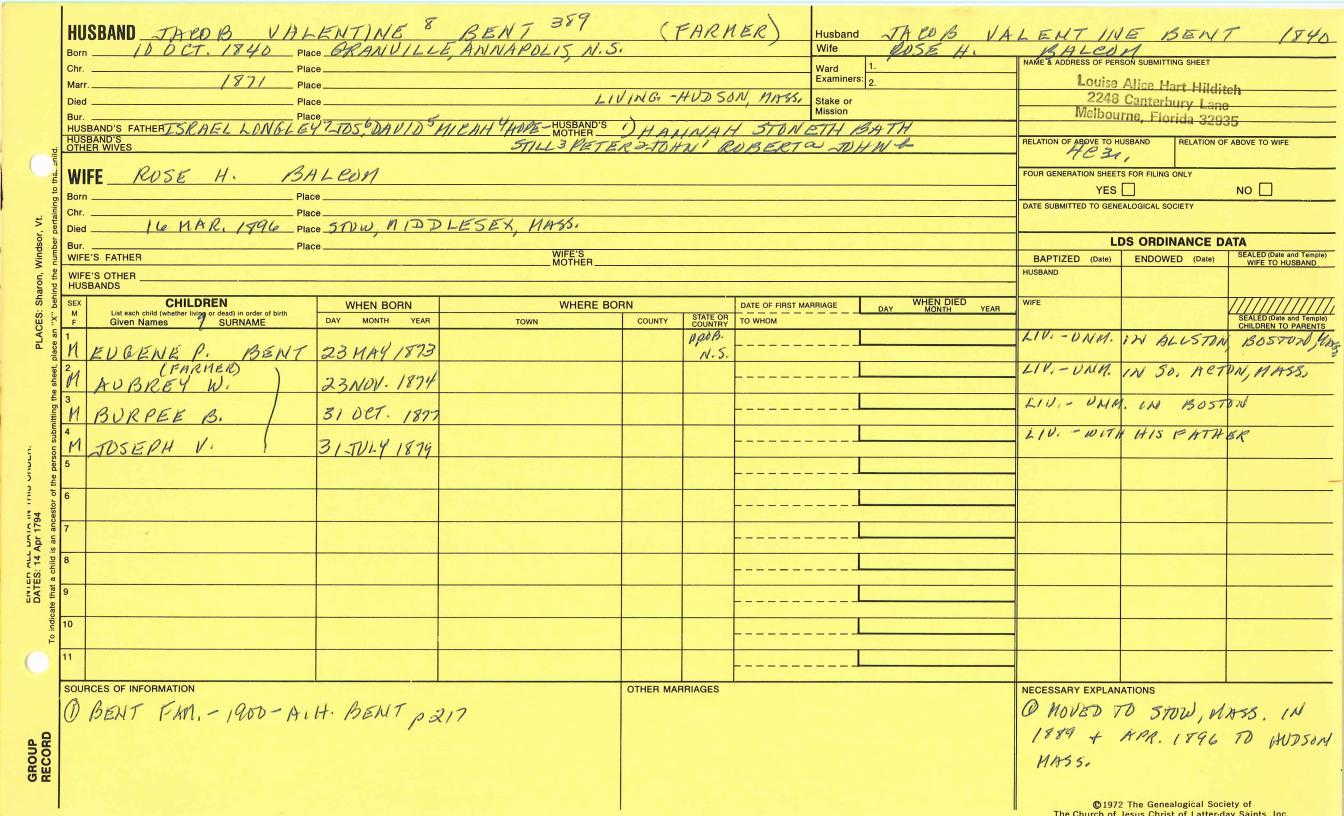 HUSBAND JACOB VALENTINE 8 BENT 389 (FARMER)
Born 10 OCT. 1840 Place GRANVILLE, ANNAPOLIS, N.S.
Chr. Place
Marr. 1871 Place
Died Place LIVING - HUDSON, MASS.
Bur. Place
HUSBAND'S FATHER ISRAEL LONGLEY 7 JOS. 6 DAVID 5 MICAH 4 HOPE- HUSBAND'S MOTHER 1) HANNAH STONETH BATH
HUSBAND'S OTHER WIVES STILL 3 PETER 2 JOHN 1 ROBERT a JOHN b
Husband JACOB VALENTINE BENT 1840
Wife ROSE H. BALCOM
Ward Examiners: 1.
2.
Stake or Mission
NAME & ADDRESS OF PERSON SUBMITTING SHEET
Louise Alice Hart Hilditch
2248 Canterbury Lane
Melbourne, Florida 32935
RELATION OF ABOVE TO HUSBAND RELATION OF ABOVE TO WIFE
4C3r,
FOUR GENERATION SHEETS FOR FILING ONLY
YES NO
DATE SUBMITTED TO GENEALOGICAL SOCIETY
WIFE ROSE H. BALCOM
Born Place
Chr. Place
Died 16 MAR. 1896 Place STOW, MIDDLESEX, MASS.
Bur. Place
WIFE'S FATHER WIFE'S MOTHER
WIFE'S OTHER HUSBANDS
LDS ORDINANCE DATA
BAPTIZED (Date) ENDOWED (Date) SEALED (Date and Temple) WIFE TO HUSBAND
HUSBAND
WIFE
SEALED (Date and Temple) CHILDREN TO PARENTS
SEX M F
CHILDREN
List each child (whether living or dead) in order of birth
Given Names 9 SURNAME
WHEN BORN
DAY MONTH YEAR
WHERE BORN
TOWN COUNTY STATE OR COUNTRY
DATE OF FIRST MARRIAGE
TO WHOM
WHEN DIED
DAY MONTH YEAR
1 M EUGENE P. BENT 23 MAY 1873 PROB. N.S. LIV. - UNM. IN ALLSTON, BOSTON, MASS
2 M AUBREY W. (FARMER) 23 NOV. 1874 LIV. - UNM. IN SO. ACTON, MASS.
3 M BURPEE B. 31 OCT. 1877 LIV. - UNM. IN BOSTON
4 M JOSEPH V. 31 JULY 1879 LIV. - WITH HIS FATHER
5
6
7
8
9
10
11
SOURCES OF INFORMATION
① BENT FAM. - 1900 - A.H. BENT p 217
OTHER MARRIAGES
NECESSARY EXPLANATIONS
① MOVED TO STOW, MASS. IN
1889 + APR. 1896 TO HUDSON
MASS.
©1972 The Genealogical Society of
The Church of Jesus Christ of Latter-day Saints, Inc.
PLACES: Sharon, Windsor, Vt.
ENTER ALL DATA IN THIS ORDER:
DATES: 14 Apr 1794
To indicate that a child is an ancestor of the person submitting the sheet, place an "X" behind the number pertaining to that child.
GROUP RECORD